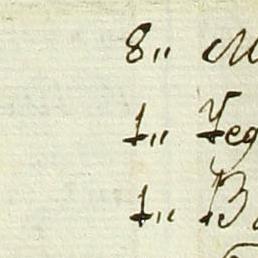 8„ M
1„ Veg
1„ B